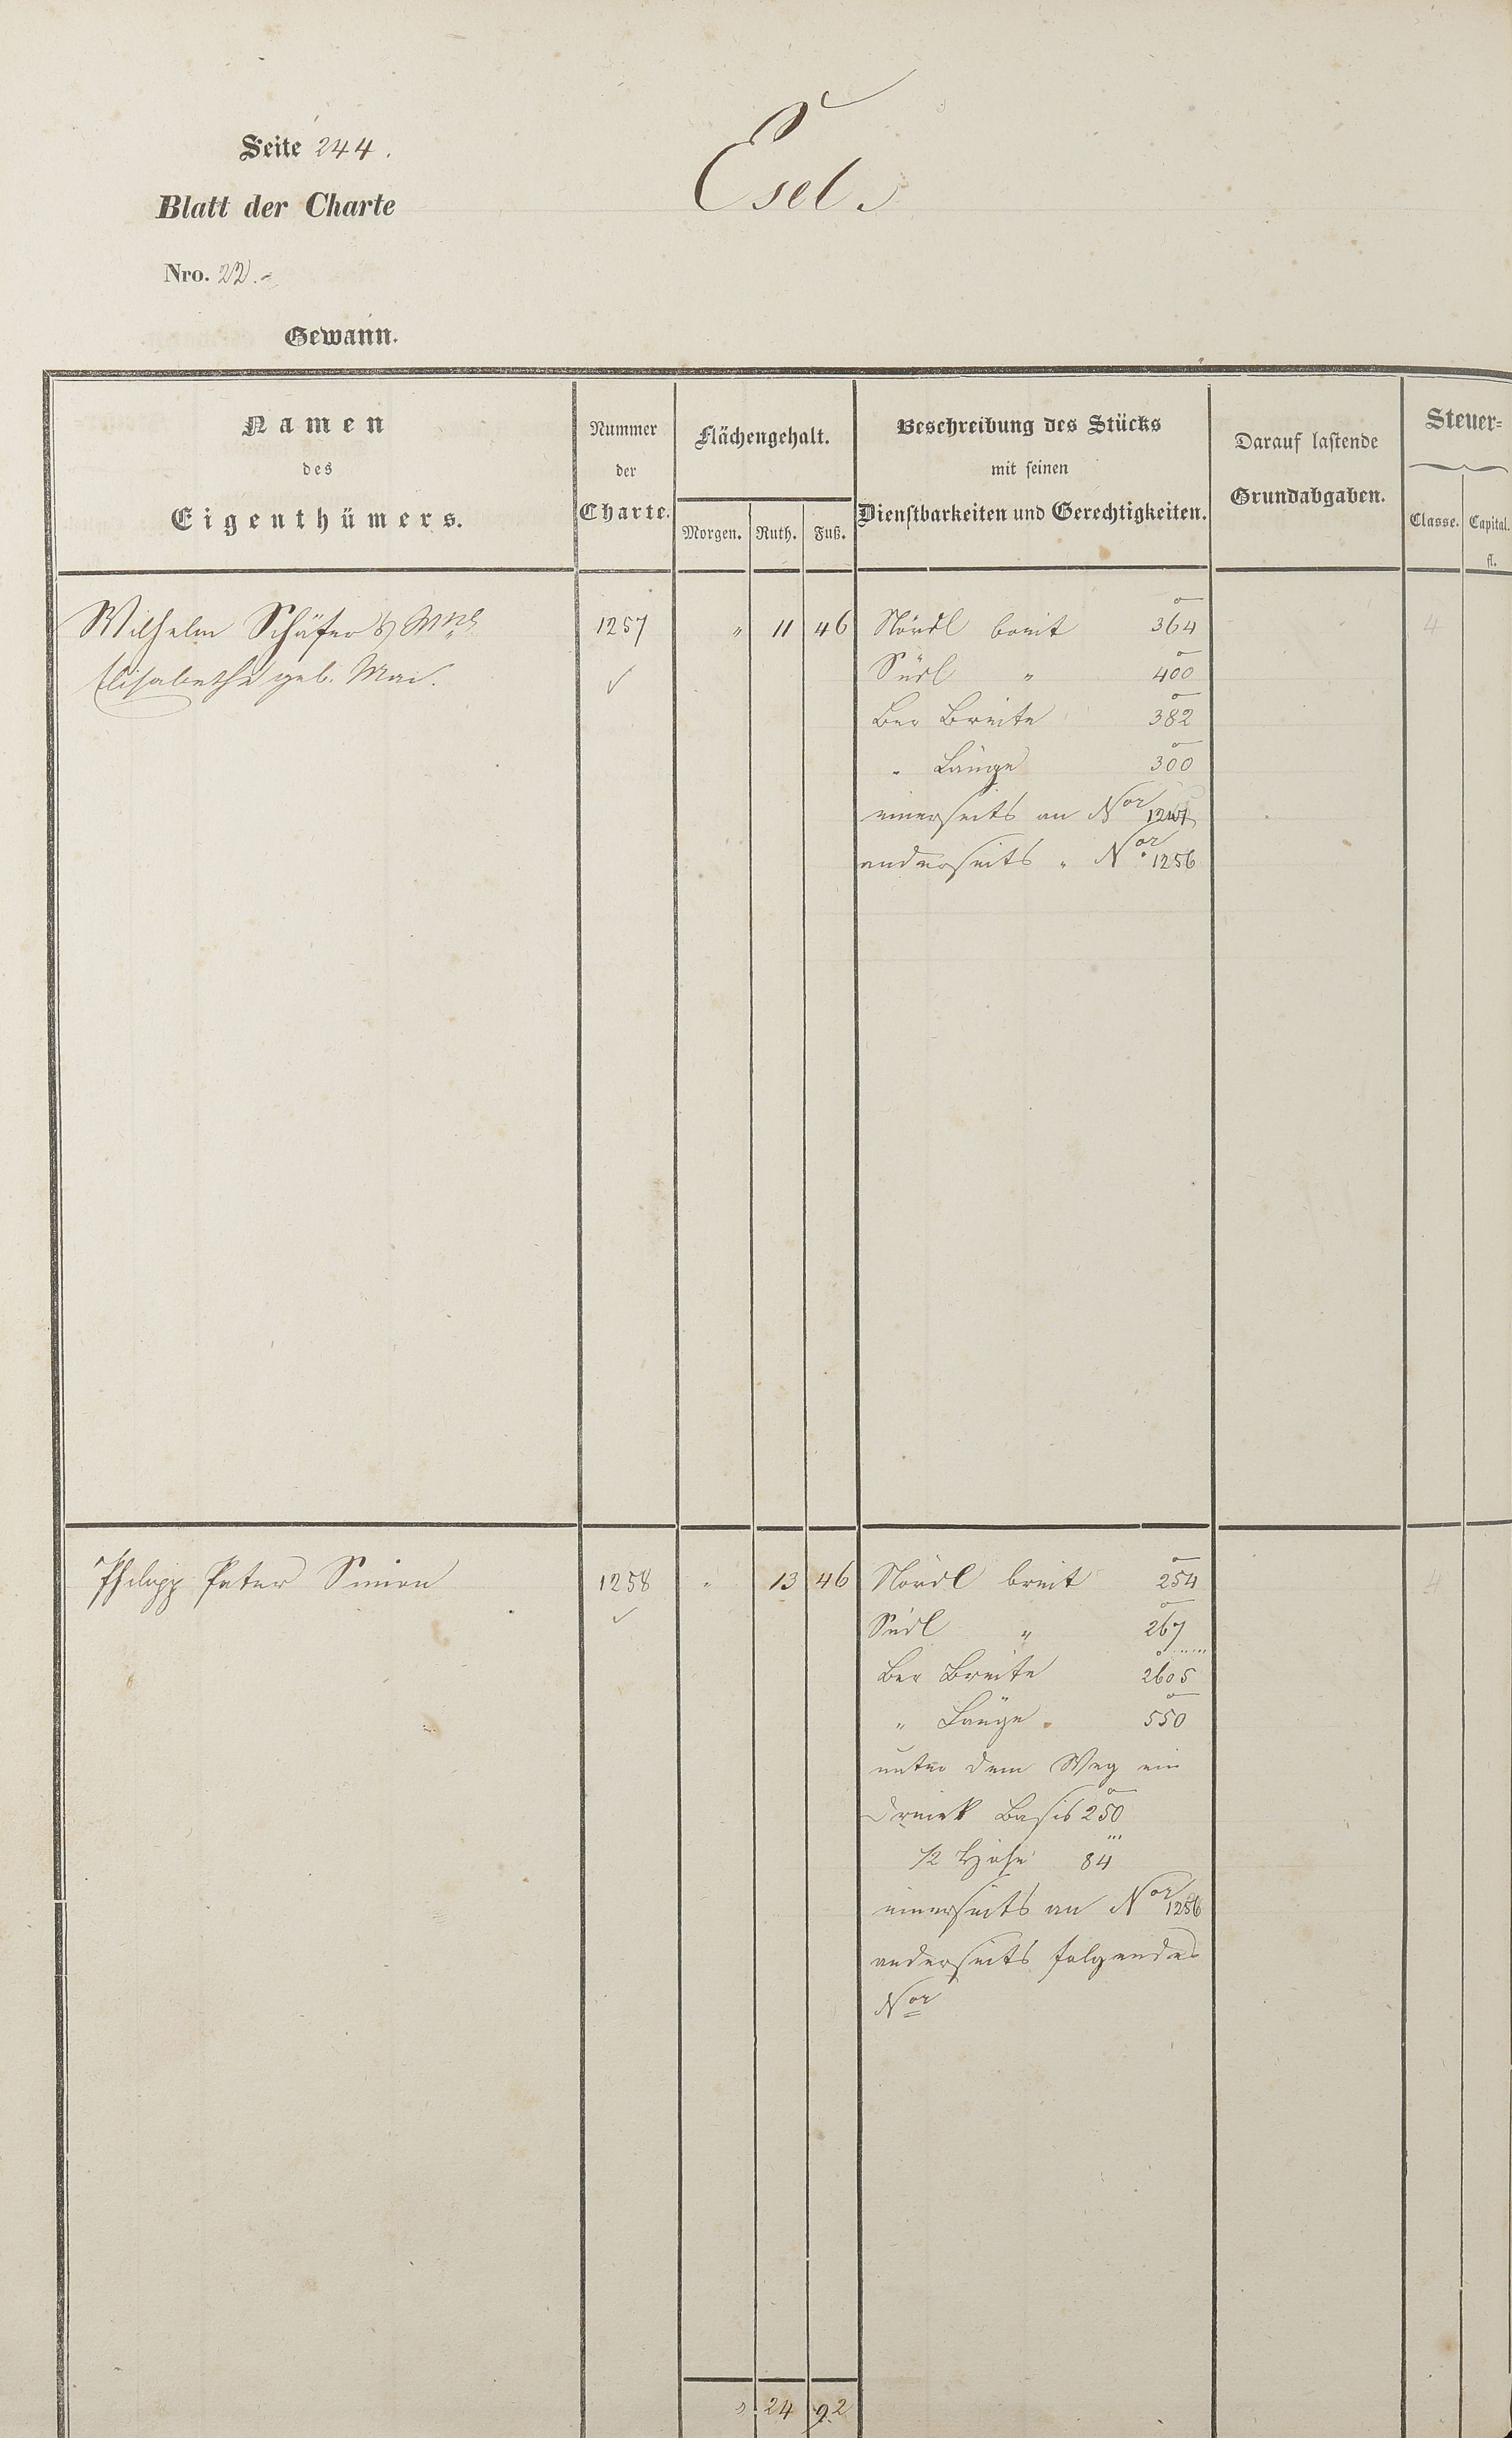 Seite 244.
Esel.
Blatt der Charte
Nro. 22.
Gewann.
Namen
des
Eigenthümers.
Nummer
der
Charte.
Flächengehalt.
Morgen. Ruth. Fuß.
Beschreibung des Stücks
mit seinen
Dienstbarkeiten und Gerechtigkeiten.
Darauf lastende
Grundabgaben.
Steuer=
Classe. Capital.
fl.
Wilhelm Schäfer 1257 " 11 46 Nördl breit 364 4
Elisabetha geb. Mai. Südl " 400
Ber Breite 382
" Länge 300
einerseits an Nor
anderseits " Nor 1256
Philipp Peter Simon 1258 " 13 46 Nördl breit 254 4
Südl " 267
Ber Breite 2605
" Länge 550
unter dem Weg ein
Dreiek Basis 250
1/2 Höhe 84
einerseits an Nor 1256
anderseits folgendes
Nor
" 24 92